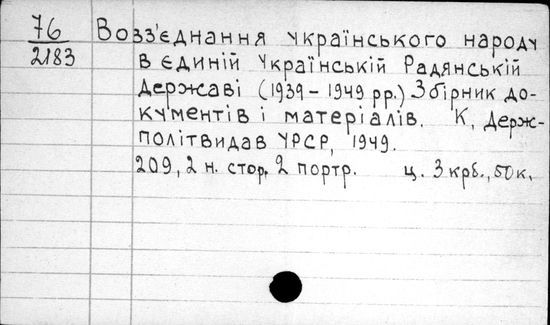 76 Возз'єднання українського народу
2183 в єдиній Українській Радянській
Державі (1939-1949 рр.) Збірник до-
кументів і матеріалів. К, Держ-
політвидав УРСР, 1949.
209, 2 н. стор, 2 портр. ц. 3 крб., 50 к.